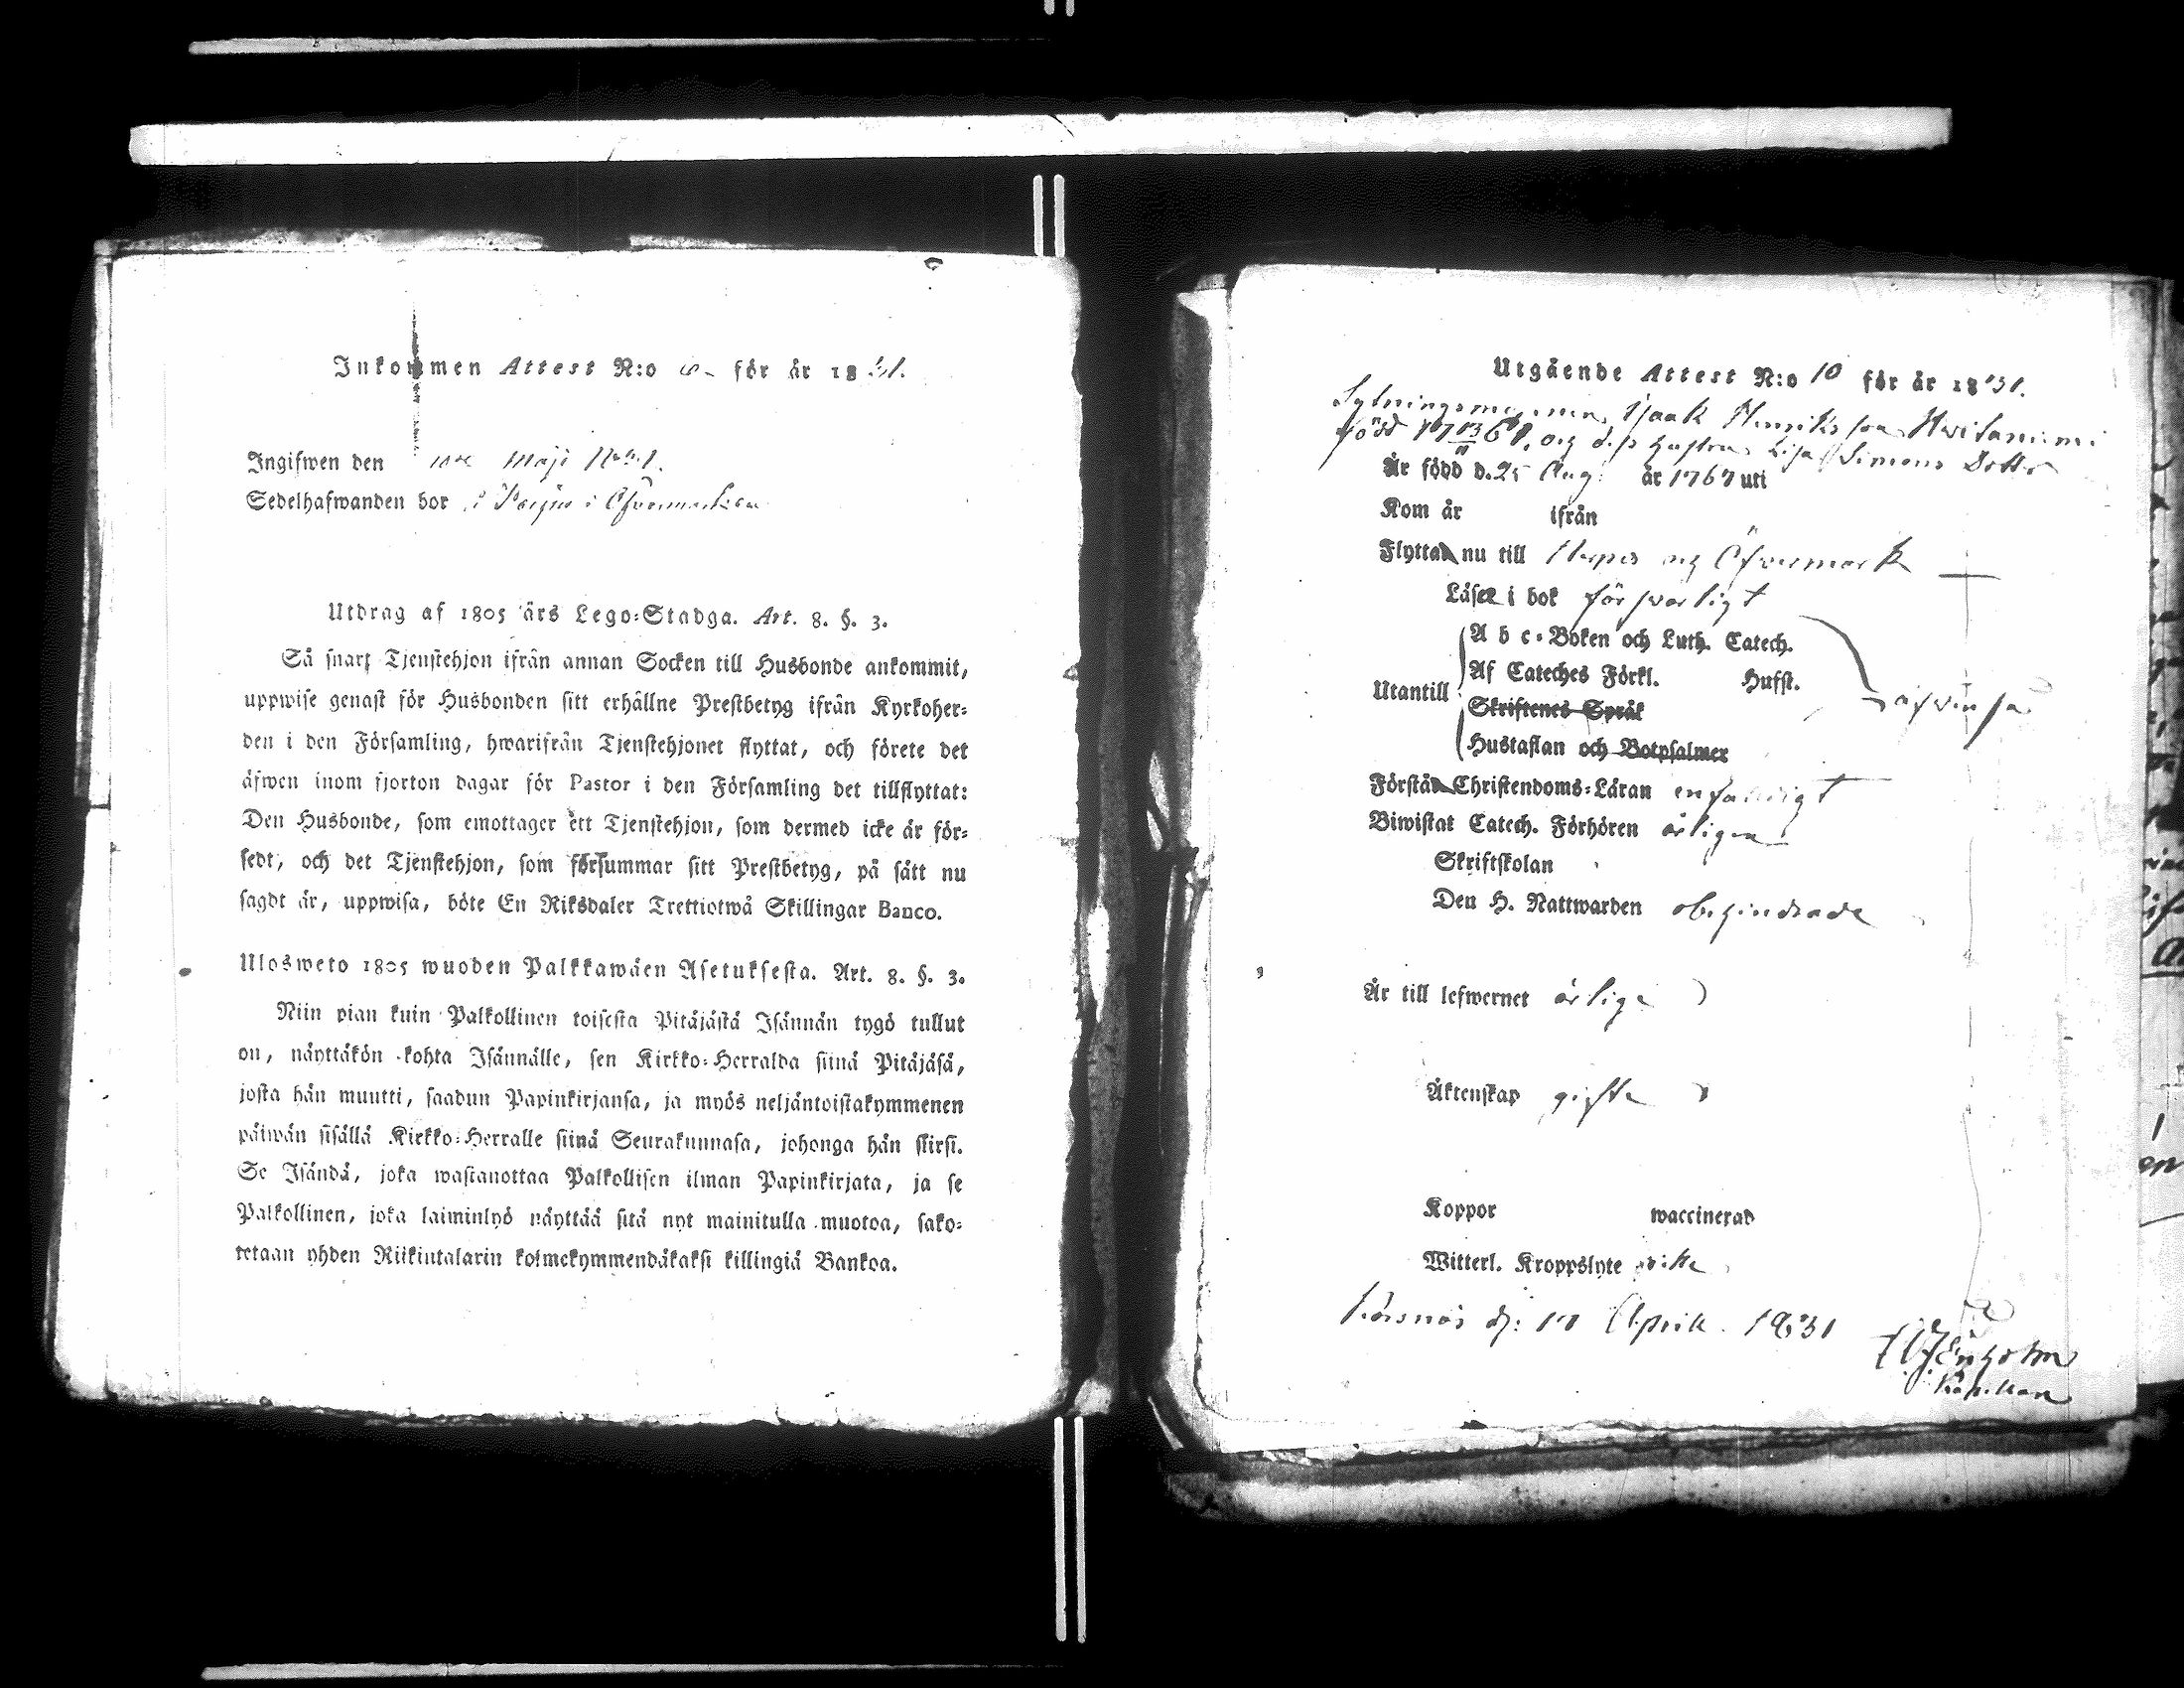 Inkommen Attest N:o för år 1831.
Ingifwen den Maji
Sedelhafwanden bor i Öfvermarken
Utdrag af 1805 års Lego-Stadga. Art. 8. §. 3.
Så snart Tjenstehjon ifrån annan Socken till Husbonde ankommit,
uppwise genast för Husbonden sitt erhållne Prestbetyg ifrån Kyrkoher-
den i den Församling, hwarifrån Tjenstehjonet flyttat, och förete det
äfwen inom fjorton dagar för Pastor i den Församling det tillflyttat:
Den Husbonde, som emottager ett Tjenstehjon, som dermed icke är för-
sedt, och det Tjenstehjon, som försummar sitt Prestbetyg, på sätt nu
sagdt är, uppwisa, böte En Riksdaler Trettiotwå Skillingar Banco.
Ulosweto 1805 wuoden Palkkawäen Asetuksesta. Art. 8. §. 3.
Niin pian kuin Palkollinen toisesta Pitäjästä Isännän tygö tullut
on, näyttäkön kohta Isännälle, sen Kirkko-Herralda siinä Pitäjäsä,
josta hän muutti, saadun Papinkirjansa, ja myös neljäntoistakymmenen
päiwän sisällä Kirkko-Herralle siinä Seurakunnasa, johonga hän siirsi.
Se Isändä, joka wastanottaa Palkollisen ilman Papinkirjata, ja se
Palkollinen, joka laiminlyö näyttää sitä nyt mainitulla muotoa, sako-
tetaan yhden Riikintalarin kolmekymmendäkaksi killingiä Bankoa.
Utgående Attest N:o 10 för år 1831.
Sytningsmannen Isaak Henriksson
född och dess hustru Lisa Simons Dotter
Är född d. 25 Aug. år 1767 uti
Kom år ifrån
Flyttar nu till och Öfvermark
Läser i bok försvarligt
A b c-Boken och Luth. Catech.
Af Cateches Förkl. Hufst.
Utantill
Skriftenes Språk
Hustaflan och Botpsalmer
Förstår Christendoms-Läran enfaldigt
Biwistat Catech. Förhören årligen
Skriftskolan
Den H. Nattwarden obehindrade
Är till lefwernet ärliga
Äktenskap gifta
Koppor waccinerad
Witterl. Kroppslyte
Korsnäs d: April 1831
Kapellan